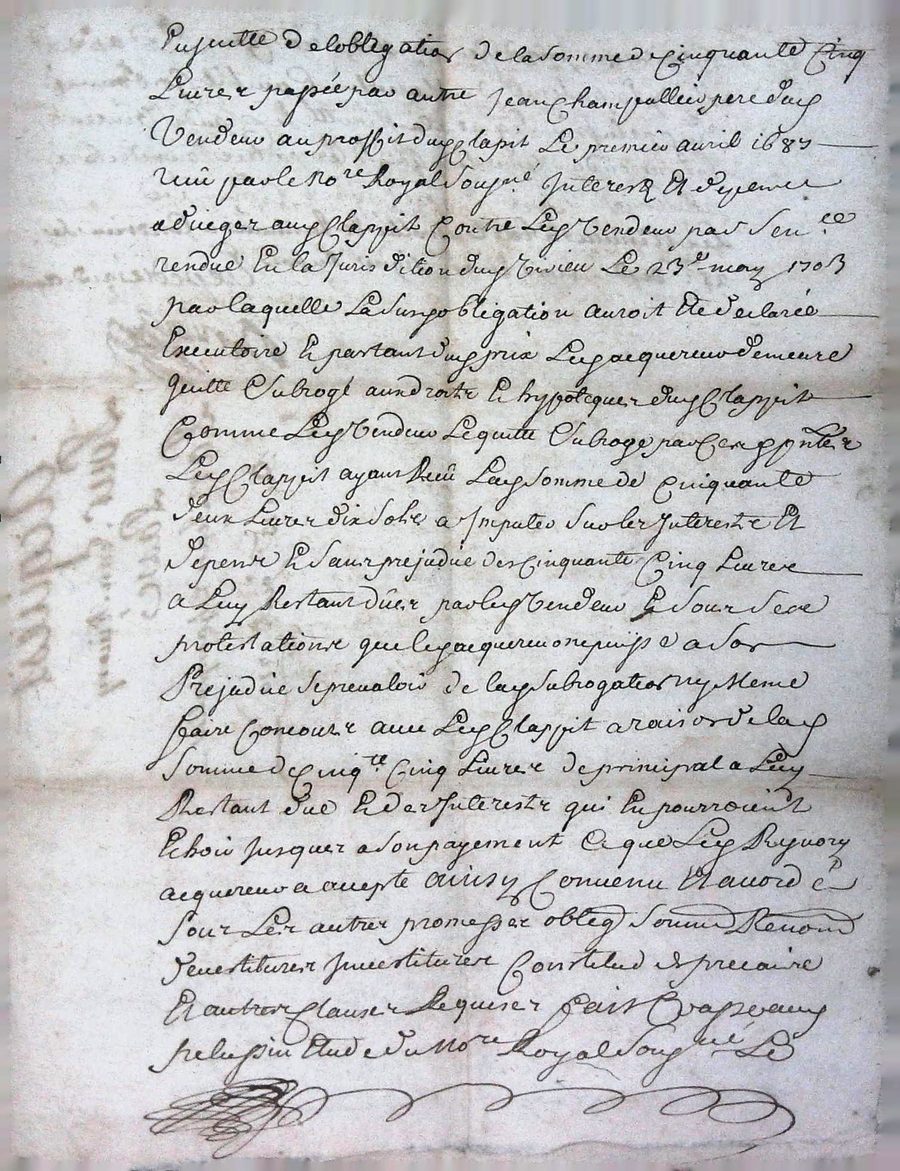 Ensuitte de lobligation de la somme de Cinquante Cinq
Livres passée par autre Jean Champollion pere dud
Vendeur au proffit dud Clapit Le premier avril 1687
receu par le No.re Royal Sousné Interest Et depens
adiugez aud Clappit Contre Led Vendeur par Sen.ce
rendue En la Jurisdition dud Virieu Le 23e may 1703
par laquelle La susd obligation auroit Eté declarée
Executoire Et partant dud prix Led acquereur demeure
quitte Subrogé aux droits Et hypoteques dud Clappit
Comme Led Vendeur Le quitte Subroge par Ces pntes
Led Clappit ayant Receu Lad Somme de Cinquante
deux Livres dix Sols a Imputer Sur les Interests Et
depens Et Sans prejudice des Cinquante Cinq Livres
a Luy Restant dües par led Vendeur Et Sous
protestations que led acquereur ne puisse a Son
Prejudice Se prevaloir de lad Subrogation ny Meme
faire Concours avec Led Clappit a raison de lad
Somme de Cinq.te Cinq Livres de principal a Luy
Restant due Et des Interests qui En pourroient
Echoir Jusques a Son payement Ce que Led
acquereur a accepte ainsy Convenu Et accordé
Sour Les autres promesses oblig Soumis Renon
devestitures Investitures Constitud de precaire
Et autres Clauses Requises fait
Etude du No.re Royal Sous né Le